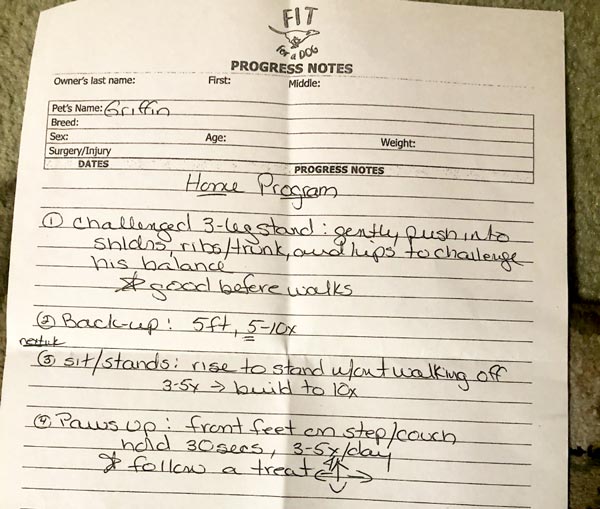 FIT
for a DOG
PROGRESS NOTES
Owner's last name: First: Middle:
Pet's Name: Griffin
Breed:
Sex: Age: Weight:
Surgery/Injury
DATES PROGRESS NOTES
Home Program
① Challenged 3-leg stand: gently push into
shldrs, ribs/trunk, and hips to challenge
his balance
* good before walks
② Back-up: 5ft, 5-10x
③ sit/stands: rise to stand w/out walking off
3-5x → build to 10x
④ Paws up: front feet on step/couch
hold 30secs, 3-5x/day
* follow a treat